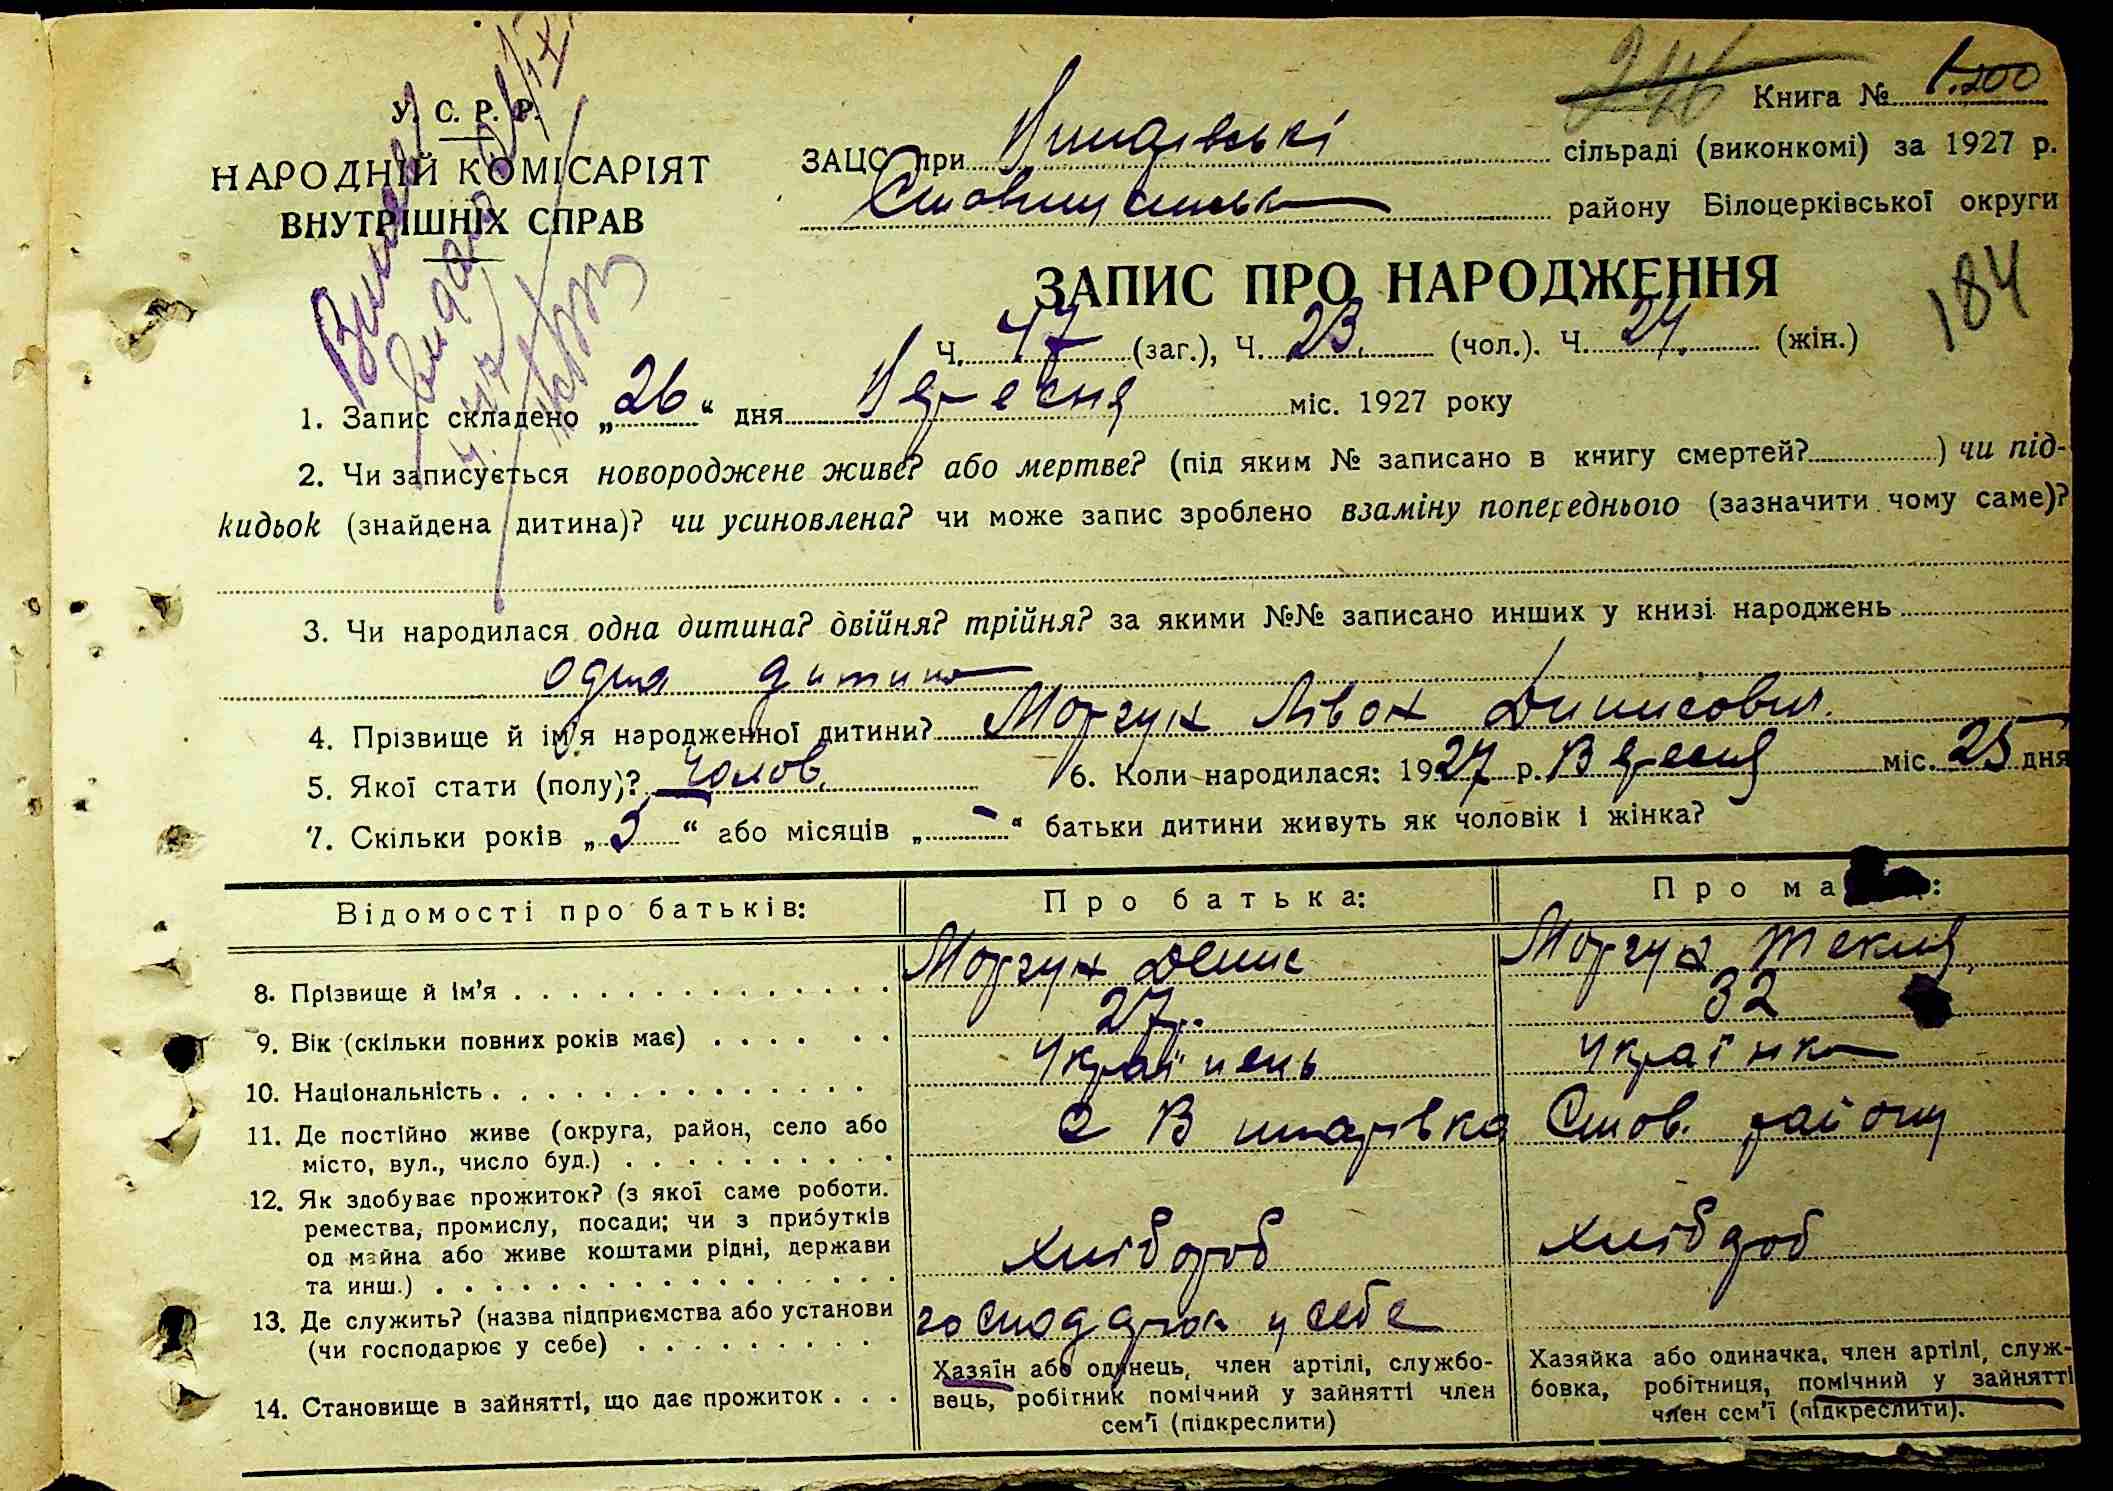 246 Книга № 1.200
У. С. Р. Р.
НАРОДНІЙ КОМІСАРІЯТ
ВНУТРІШНІХ СПРАВ
ЗАЦС при сільраді (виконкомі) за 1927 р.
району Білоцерківської округи
ЗАПИС ПРО НАРОДЖЕННЯ
184
Ч. 47 (заг.), Ч. 23. (чол.). Ч. 24. (жін.)
1. Запис складено „26“ дня Вересня міс. 1927 року
2. Чи записується новороджене живе? або мертве? (під яким № записано в книгу смертей?) чи під-
кидьок (знайдена дитина)? чи усиновлена? чи може запис зроблено взаміну попереднього (зазначити чому саме)?
3. Чи народилася одна дитина? двійня? трійня? за якими №№ записано инших у книзі народжень
одна дитина
4. Прізвище й ім'я народженної дитини? Моргун Лівон Динисович.
5. Якої стати (полу)? Чолов. 6. Коли народилася: 1927 р. Вересня міс. 25 дня
7. Скільки років „5“ або місяців „-“ батьки дитини живуть як чоловік і жінка?
Відомості про батьків: Про батька: Про ма :
8. Прізвище й ім'я Моргун Денис Моргун Текля
9. Вік (скільки повних років має) 27. 32
10. Національність Українець Українка
11. Де постійно живе (округа, район, село або
місто, вул., число буд.) с Вишарівка Стов. району
12. Як здобуває прожиток? (з якої саме роботи.
ремества, промислу, посади; чи з прибутків
од майна або живе коштами рідні, держави
та инш.) хлібороб хлібороб
13. Де служить? (назва підприємства або установи
(чи господарює у себе) у себе
14. Становище в зайнятті, що дає прожиток
Хазяїн або одинець, член артілі, службо-
вець, робітник помічний у зайнятті член
сем'ї (підкреслити)
Хазяйка або одиначка, член артілі, служ-
бовка, робітниця, помічний у зайнятті
член сем'ї (підкреслити).